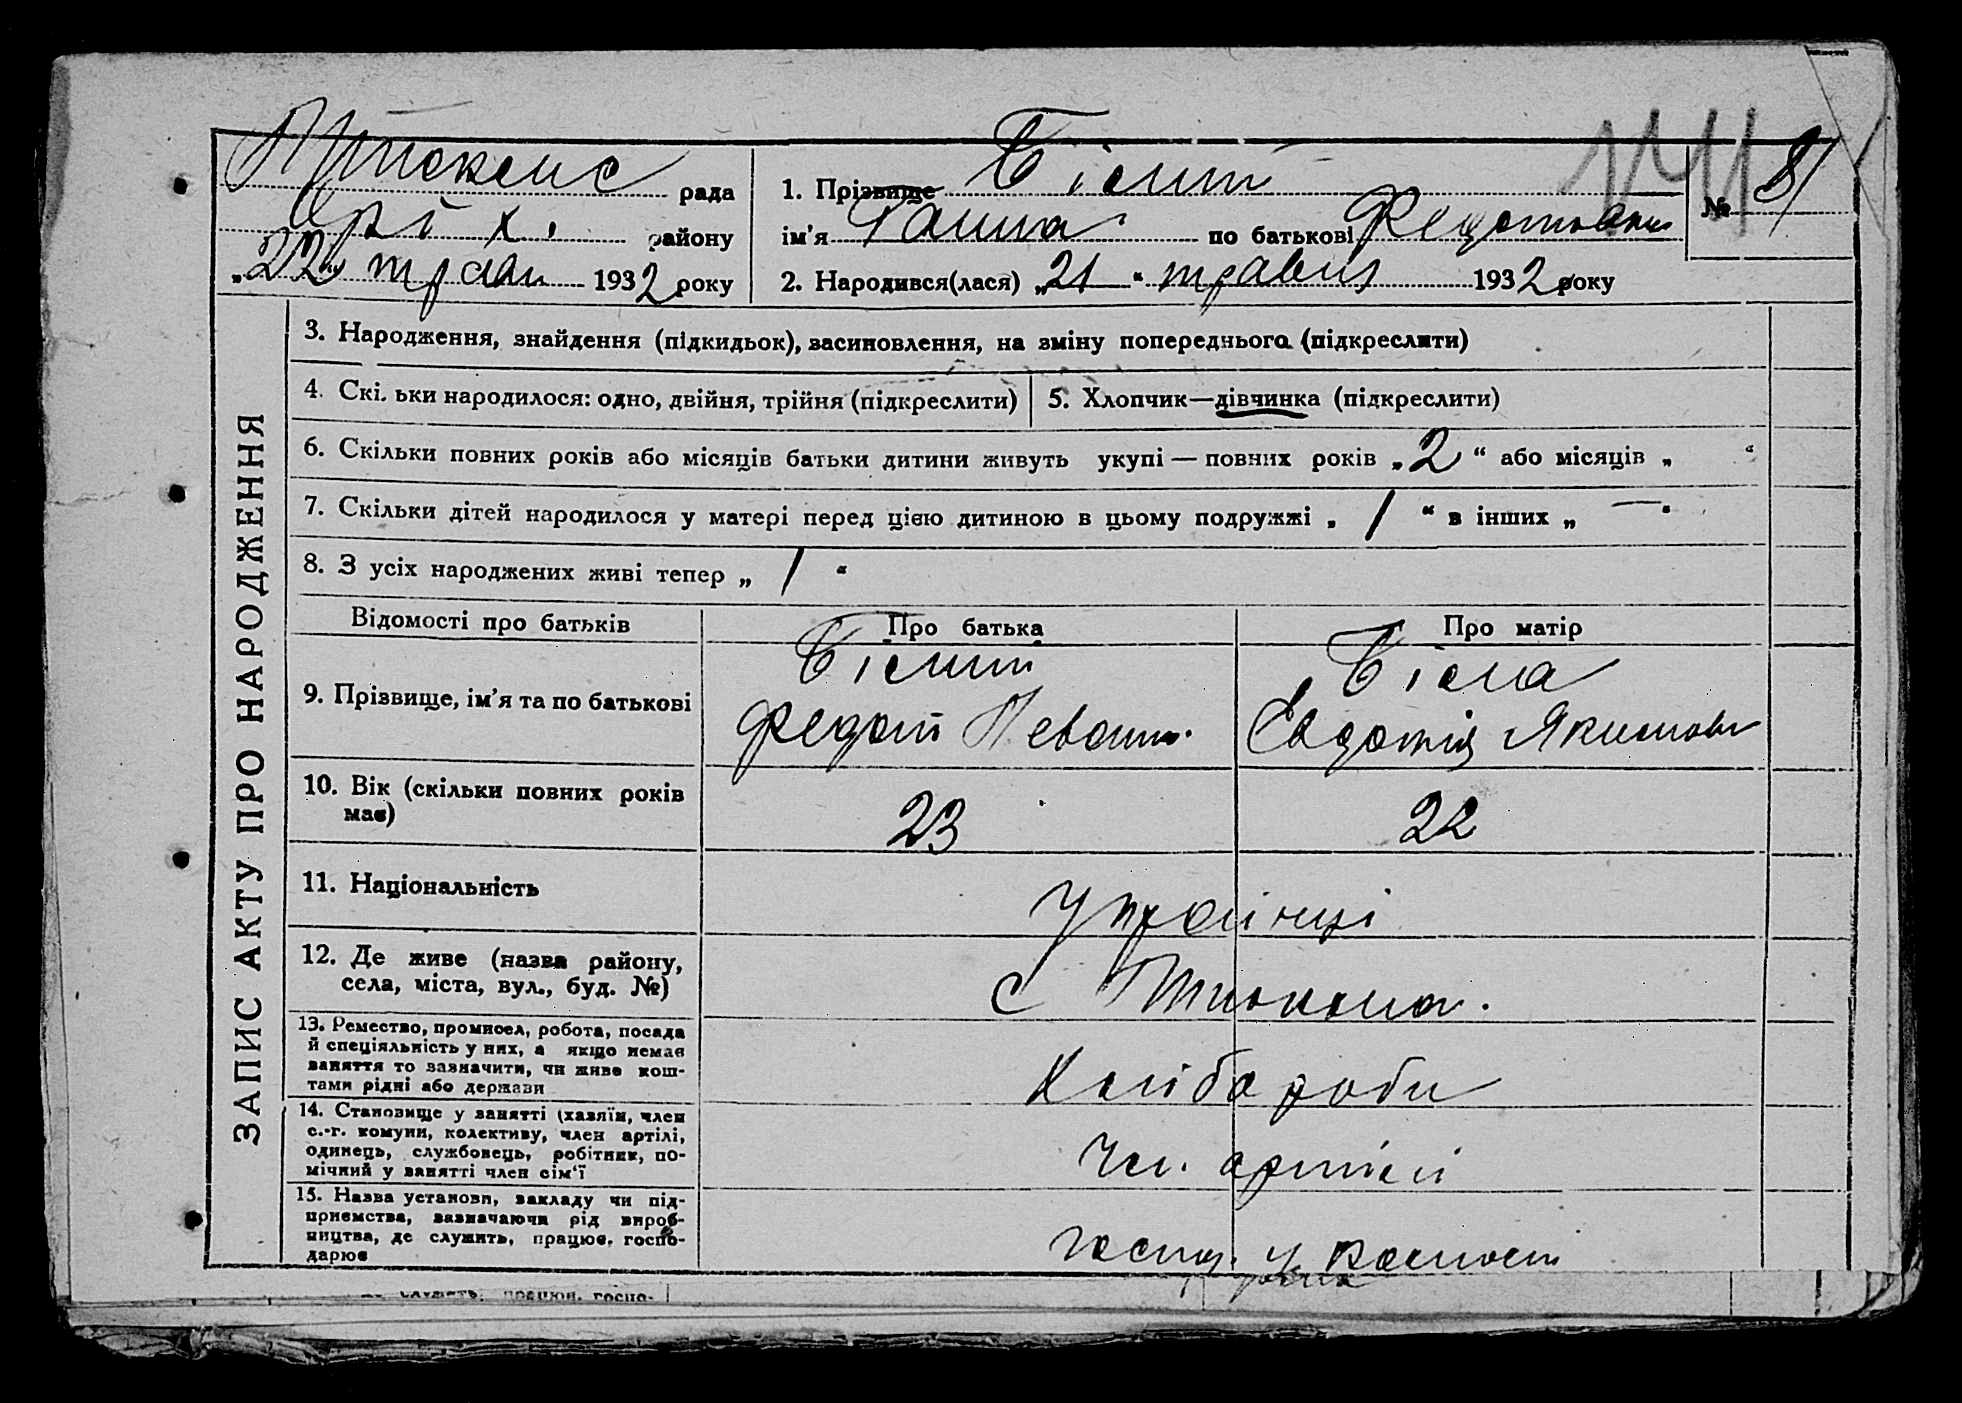 рада
Оріх. району
„22“ трав 1932 року
1. Прізвище Білий
ім'я Ганна по батькові Федотовна
2. Народився(лася) „21“ травня 1932 року
№ 81
ЗАПИС АКТУ ПРО НАРОДЖЕННЯ
3. Народження, знайдення (підкидьок), засиновлення, на зміну попереднього (підкреслити)
4. Скі. ьки народилося: одно, двійня, трійня (підкреслити)
5. Хлопчик—дівчинка (підкреслити)
6. Скільки повних років або місяців батьки дитини живуть укупі — повних років „2“ або місяців „ “
7. Скільки дітей народилося у матері перед цією дитиною в цьому подружжі „1“ в інших „—“
8. З усіх народжених живі тепер „1“
Відомості про батьків Про батька Про матір
9. Прізвище, ім'я та по батькові
Білий
Федот
Біла
Євдотія Якимовн
10. Вік (скільки повних років
має)
23 22
11. Національність
Українці
12. Де живе (назва району,
села, міста, вул., буд. №)
с
13. Ремество, промисел, робота, посада
й спеціяльність у них, а якщо немає
заняття то зазначити, чи живе кош-
тами рідні або держави
Хліборобы
14. Становище у занятті (хазяїн, член
с.-г. комуни, колективу, член артілі,
одинець, службовець, робітник, по-
мічний у занятті член сім'ї
Чл. артілі
15. Назва установи, закладу чи під-
приємства, зазначаючи рід вироб-
ництва, де служить, працює, госпо-
дарює
господ. у
служить, працює, госпо-